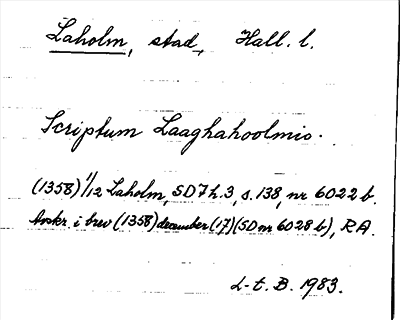 Laholm, stad, Hall. l.
Scriptum Laaghahoolmis.
(1358) 1/12 Laholm, SD7h.3, s.138, nr 6022 b.
Avskr. i brev (1358) december (17) (SD nr 6028 b), RA.
L-t. B. 1983.